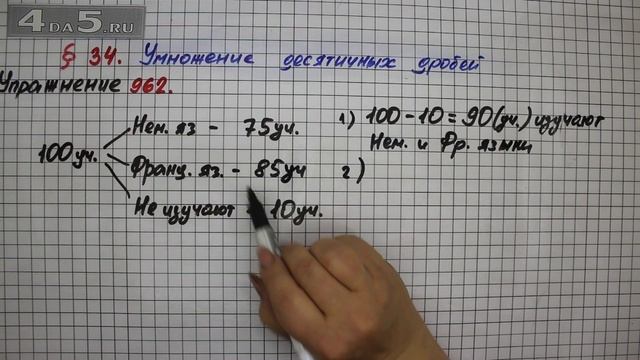 4DA5.RU
§ 34. Умножение десятичных дробей
Упражнение 962.
100 уч.
Нем. яз - 75 уч.
Франц. яз. - 85 уч
Не изучают - 10 уч.
1) 100 - 10 = 90 (уч.) изучают
Нем. и Фр. языки
2)